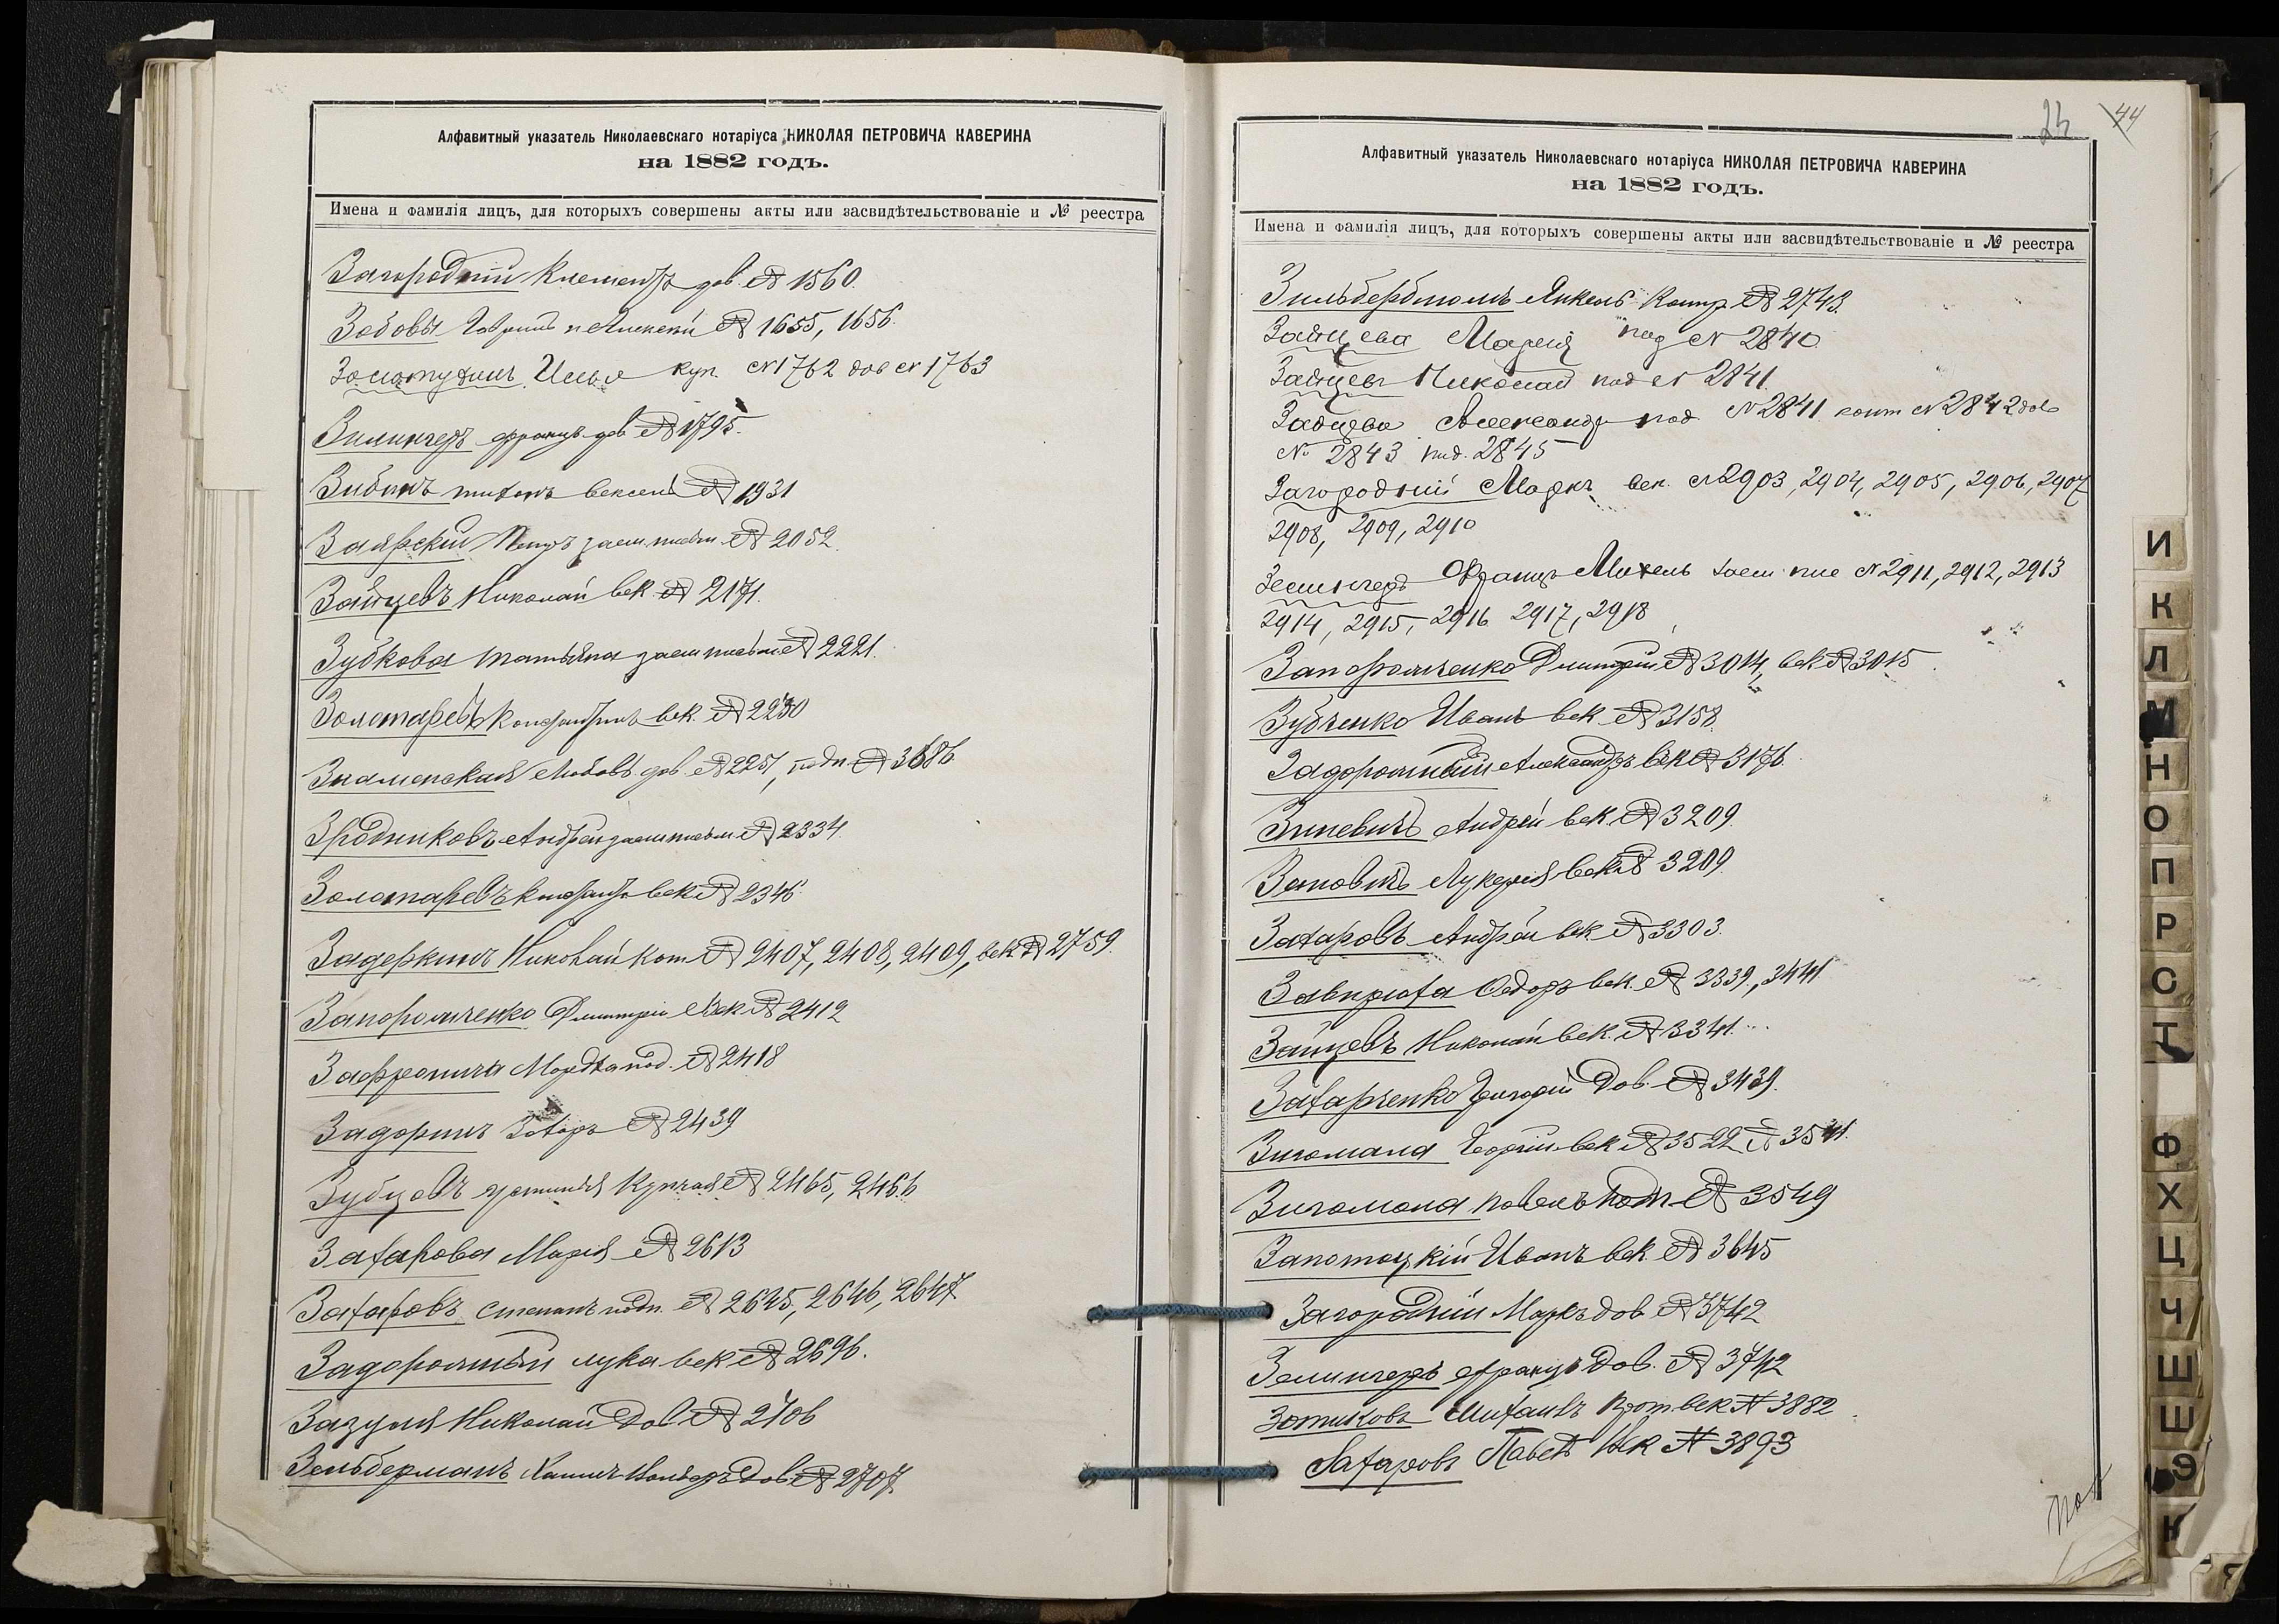 Алфавитный указатель Николаевскаго нотаріуса НИКОЛАЯ ПЕТРОВИЧА КАВЕРИНА
на 1882 годъ.
Имена и фамилія лицъ, для которыхъ совершены акты или засвидѣтельствованіе и № реестра
Загородній Клементъ дов. № 1560.
Зобовы Гаврiилъ и Алексѣй № 1655, 1656.
Золотухинъ Илья куп. № 1762 дов № 1763
Зилингеръ Францъ дов № 1795.
Зибинъ Тихонъ вексель № 1931
Заярскій Петръ заем. письм № 2052.
Зайцевъ Николай век. № 2171.
Зубкова Татьяна заем письм № 2221.
Золотаревъ век. № 2230
Знаменская Любовь дов. № 2251, подп № 3686
Зрадниковъ Андрей заем письм № 2334.
Золотаревъ век № 2346.
Задеркинъ Николай кон № 2407, 2408, 2409, век № 2759.
Запорожченко Дмитрій век № 2412
Мордка под. № 2418
Задоринъ Захаръ № 2439
Зубцовъ купчая № 2465, 2466
Захарова Марія № 2613
Захаровъ Степанъ подп. № 2645, 2646, 2647
Задорожный Лука век № 2696.
Зазуля Николай Дов № 2706
Зельберманъ Дов № 2707.
23 44
Алфавитный указатель Николаевскаго нотаріуса НИКОЛАЯ ПЕТРОВИЧА КАВЕРИНА
на 1882 годъ.
Имена и фамилія лицъ, для которыхъ совершены акты или засвидѣтельствованіе и № реестра
Янкель № 2743.
Зайцева Марія под № 2840
Зайцевъ Николай под № 2841.
Зайцева Александр под № 2841 конт № 2842 дов
№ 2843 под. 2845
Загородній Маркъ век. № 2903, 2904, 2905, 2906, 2907
2908, 2909, 2910
Зелингеръ Францъ Михель заем пис № 2911, 2912, 2913
2914, 2915, 2916 2917, 2918
Запорожченко Дмитрій № 3014, век № 3015
Зубченко Иванъ век № 3158.
Задорожный Александръ век № 3176.
Зиневичъ Андрей век. № 3209.
Лукерія век № 3209
Захаровъ Андрей век № 3303.
Завирюха Федоръ век. № 3339, 3441
Зайцевъ Николай век. № 3341.
Захарченко Григорій Дов. № 3439.
Зигомала Георгій век № 3522 № 3541.
Зигомала Павелъ № 3549
Запотоцкій Иванъ век № 3645
Загородній Маркъ дов № 3742
Зелингеръ Францъ Дов. № 3742
Зотиковъ Михаилъ прот век № 3882
Захаровъ Павелъ Век № 3893
И
К
Л
М
Н
О
П
Р
С
Т
Ф
Х
Ц
Ч
Ш
Щ
Э